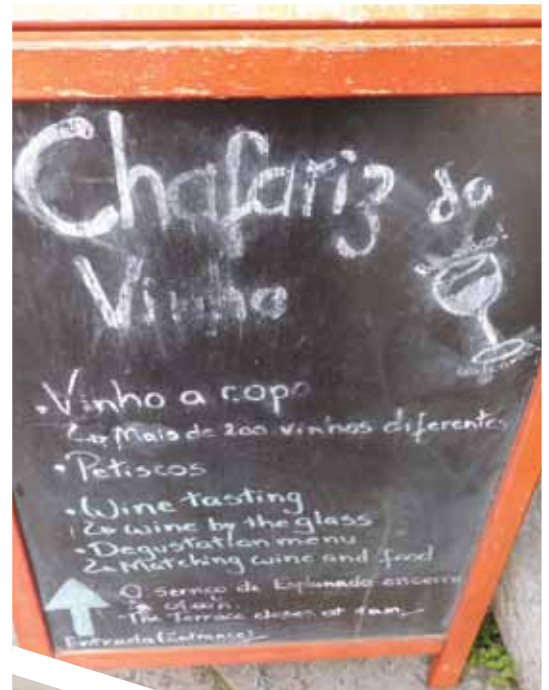 Chafariz do
Vinho
• Vinho a copo
↳ Mais de 200 vinhos diferentes
• Petiscos
• Wine tasting
↳ wine by the glass
• Degustation menu
↳ Matching wine and food
O serviço de Esplanada encerra
The Terrace closes at 1am
Entrada (Entrance)